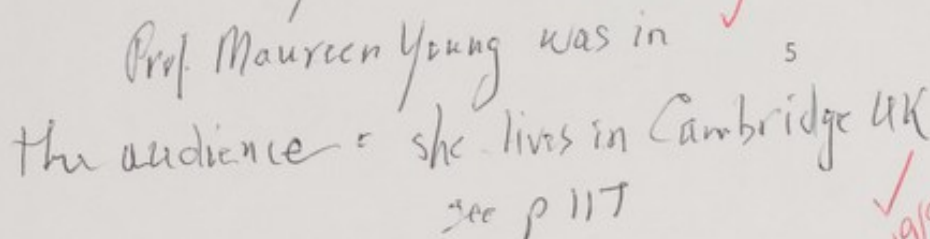 Prof. Maureen Young was in
5
the audience - she lives in Cambridge UK
see p 117